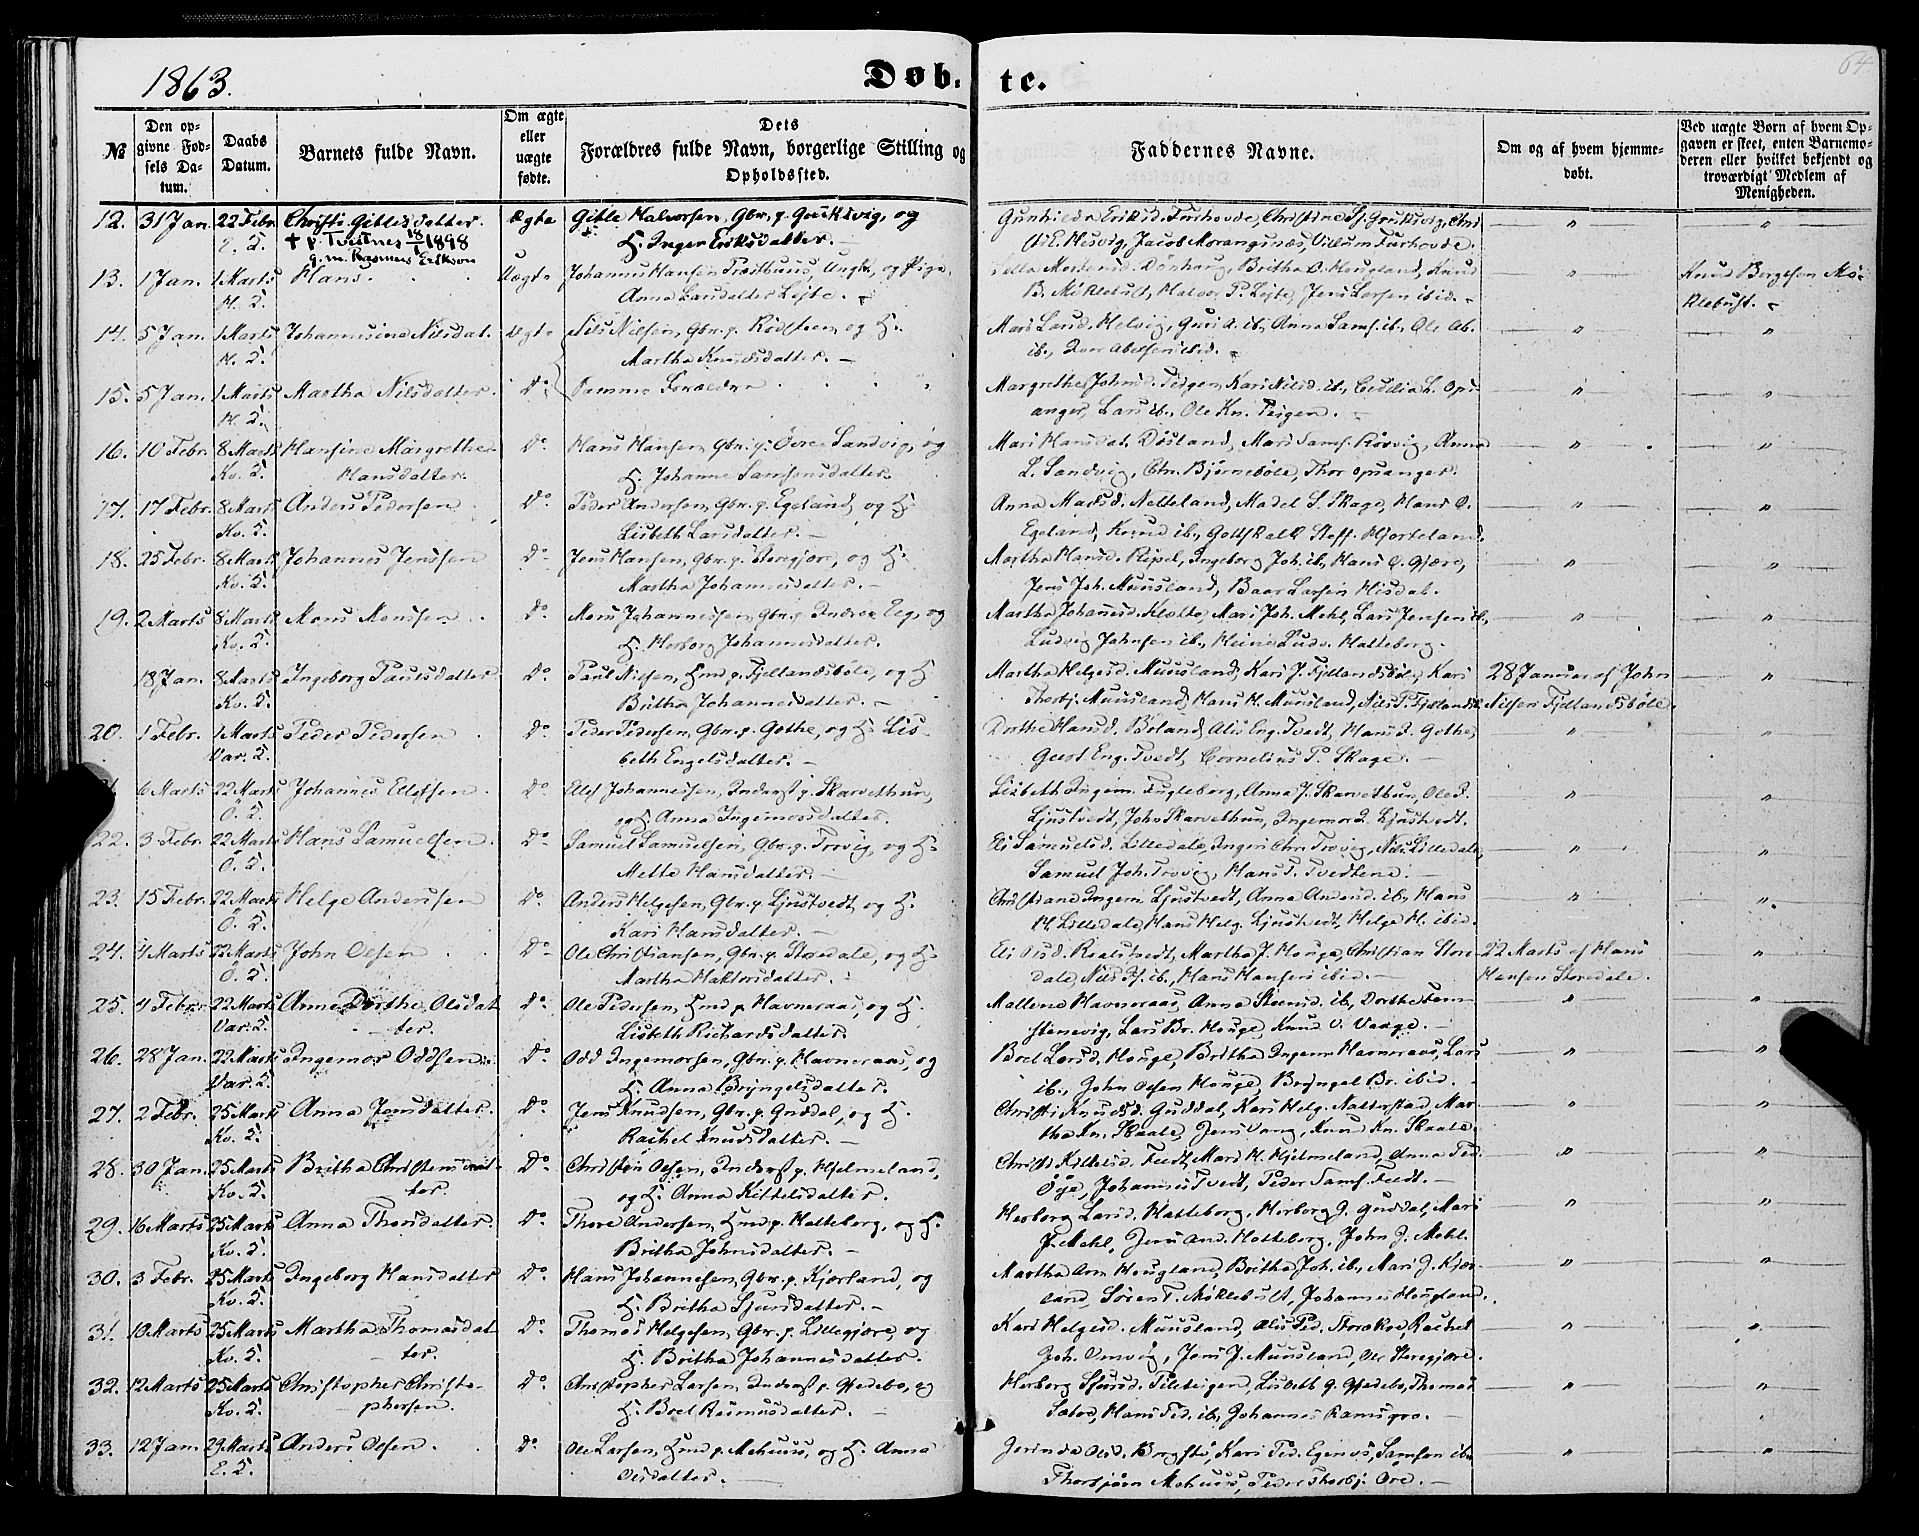 1863.
Døb-
te.
64
№
Den op-
givne Fød-
sels Da-
tum.
Daabs
Datum.
Barnets fulde Navn.
Om ægte
eller
uægte
fødte.
Dets
Forældres fulde Navn, borgerlige Stilling og
Opholdssted.
Faddernes Navne.
Om og af hvem hjemme-
døbt.
Ved uægte Børn af hvem Op-
gaven er skeet, enten Barnemo-
deren eller hvilket bekjendt og
troværdigt Medlem af
Menigheden.
12. 31 Jan. 22 Febr. Christi Gitlesdatter. Ægte Gitle Halvorsen, Gbr. p. Gouksvig, og
H. Inger Eriksdatter.
Gunhilda Eriksd. Furhovde, Christine
Hesvig, Jacob Morangsnæs, Villum Furhovde.
13. 1 Jan. 1 Marts Hans. Uægte Johannes Hansen Træthuus, Ungk. og Pige
Anna Larsdatter Lejte.
Britha O. Hougland, Knud
B. Møklebust, Halvor P. Lejte, Jens Larsen ibid.
Knud Bergesen Mø-
klebust.
14. 5 Jan. 1 Marts Johannesine Nilsdat. Ægte Nils Nilsen, Gbr. p. Rødsteen, og H.
Martha Knudsdatter.
Helvig, Guri A. ib., Anna Sams. ib., Ole Ab.
ib., Iver Abelsen ibid.
15. 5 Jan. 1 Marts Martha Nilsdatter. Do Samme Forældre
Margrethe Johnsd. Teigen, Kari Nilsd. ib., Cecilia L. Ops-
anger, Lars ib., Ole Kn. Teigen.
16. 10 Febr. 8 Marts Hansine Margrethe Do Hans Hansen, Gbr. p. Øvre Sandvig, og
Kv. S. Hansdatter. H. Johanne Samsonsdatter.
Mari Hansdat. Døsland, Mari Sams. Røsvig, Anna
L. Sandvig, Chr. Bjørnebøle, Thor Opsanger.
17. 17 Febr. 8 Marts Anders Pedersen Do Peder Andersen, Gbr. p. Egeland, og H.
Lisbeth Larsdatter.
Anna Madsd. Netteland, Madel S. Skage, Hans O.
Egeland, Knud ib., Gottskalk Steff. Hjorteland.
18. 25 Febr. 8 Marts Johannes Jenssen Do Jens Hansen, Gbr. p. Storegjøre, og H.
Martha Johannesdatter.
Martha Hansd. Ripel, Ingeborg Joh. ib., Hans O. Gjøre,
Jens Joh. Muusland, Baar Larsen Hisdal.
19. 2 Marts 8 Marts Mons Monssen Do Mons Johannessen, Gbr. p. Indre Eeg, og
H. Herborg Johannesdatter.
Martha Johannesd. Kletta, Mari Joh. Mehl, Lars Jensen ib.,
Ludvig Johnsen ib., Heine Ludv. Hatteberg.
18 Jan. 8 Marts Ingeborg Paulsdatter Do Paul Nilsen, Hmd. p. Fjellandsbøle, og H.
Britha Johannesdatter.
Martha Helgesd. Muusland, Kari J. Fjellandsbøle, Kari
Thorbj. Muusland, Hans H. Muusland, Nils P. Fjellandsb.
28 Januar af John
Nilsen Fjellandsbøle.
20. 1 Febr. 1 Marts Peder Pedersen Do Peder Pedersen, Gbr. p. Gothe, og H. Lis-
Var. S. beth Engelsdatter.
Dorthe Hansd. Bøland, Alis Eng. Tvedt, Hans P. Gothe,
Guro Eng. Tvedt, Cornelius P. Skage.
6 Marts 22 Marts Johannes Ellefsen Do Ellef Johannessen, Inderst p. Skarvethun,
Ø. S. og H. Anna Ingemorsdatter.
Lisbeth Ingem. Fugleberg, Anna J. Skarvethun, Ole P.
Ljustvedt, John Skarvethun, Ingemor P. Ljustvedt.
22. 3 Febr. 22 Marts Hans Samuelsen Do Samuel Samuelsen, Gbr. p. Trovig, og H.
Ø. S. Mette Hansdatter.
Eli Samuelsd. Lilledale, Inger Chr. Trovig, Nils Lilledale,
Samuel Joh. Trovig, Hans T. Tvedtene.
23. 15 Febr. 22 Marts Helge Andersen Do Anders Helgesen, Gbr. p. Ljustvedt, og H.
Ø. S. Kari Hansdatter.
Christiane Ingem. Ljustvedt, Anna Andersd. ib., Hans
H. Lilledale, Hans Helg. Ljustvedt, Helge H. ibid.
24. 4 Marts 22 Marts John Olsen Do Ole Christiansen, Gbr. p. Storedale, og H.
Ø. S. Martha Haktorsdatter.
Eli Olsd. Raalstvedt, Martha J. Houge, Christian Store-
dale, Nils H. ib., Hans Hansen ibid.
22 Marts af Hans
Hansen Storedale.
25. 4 Febr. 22 Marts Anna Dorthe Olsdat- Do Ole Pedersen, Hmd. p. Havneraas, og H.
Var. S. ter. Lisbeth Richardsdatter.
Mallene Havneraas, Anna Steensd. ib., Dorthe
Stenevig, Lars Br. Houge, Knud V. Vaage.
26. 28 Jan. 22 Marts Ingemor Oddsen Do Odd Ingemorsen, Gbr. p. Havneraas, og
Var. S. H. Anna Bryngelsdatter.
Boel Larsd. Houge, Britha Ingem. Havneraas, Lars
ib., John Olsen Houge, Bryngel Br. ibid.
27. 2 Febr. 25 Marts Anna Jensdatter. Do Jens Knudsen, Gbr. p. Guddal, og H.
Kv. S. Rachel Knudsdatter.
Christi Knudsd. Guddal, Kari Helg. Natterstad, Mar-
tha Kn. Skaale, Jens Vang, Knud Kn. Skaale.
28. 30 Jan. 25 Marts Britha Christensdat- Do Christen Olsen, Inderst p. Hjelmeland,
Kv. S. ter. og H. Anna Kittelsdatter.
Christi Kittelsd. Feedt, Mari H. Hjelmeland, Anna Ped.
Øye, Johannes Tvedt, Peder Sams. Feedt.
29. 16 Marts 25 Marts Anna Thoresdatter. Do Thore Andersen, Hmd. p. Hatteberg, og H.
Kv. S. Britha Johnsdatter.
Herborg Larsd. Hatteberg, Herborg J. Guddal, Mari
J. Mehl, Jens And. Hatteberg, John J. Mehl.
30. 3 Febr. 25 Marts Ingeborg Hansdatter Do Hans Johannesen, Gbr. p. Kjærland, og
Kv. S. H. Britha Sjursdatter.
Martha Arn. Hougland, Britha Joh. ib., Mari J. Kjær-
land, Søren T. Møklebust, Johannes Hougland.
31. 10 Marts 25 Marts Martha Thomasdat- Do Thomas Helgesen, Gbr. p. Lillegjøre, og
Kv. S. ter. H. Britha Johannesdatter.
Kari Helgesd. Muusland, Alis Ped. Storekre, Rachel
Joh. Omvig, Jens J. Muusland, Ole Storegjøre.
32. 12 Marts 25 Marts Christopher Christo- Do Christopher Larsen, Inderst p. Gjedebo, og
Kv. S. phersen. H. Boel Rasmusdatter.
Herborg Sjursd. Teleteigen, Lisbeth G. Gjedebo, Thomas
Sæbø, Hans Ped. ib., Johannes Ramsgro.
33. 12 Jan. 29 Marts Anders Olsen. Do Ole Larsen, Hmd. p. Mehuus, og H. Anna
E. S. Olsdatter.
Jorinda Olsd. Bregstø, Kari Ped. Egenes, Samson ib.,
Thorbjørn Mehuus, Peder Thorbj. Øre.